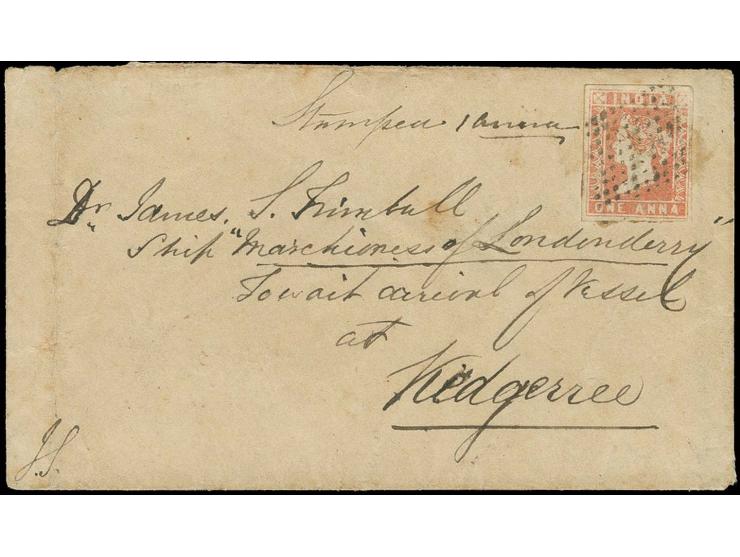 Stamped 1 anna
INDIA
ONE ANNA
Dr James. S. Trimbull
Ship "Marchioness of Londonderry"
To wait arrival of Vessel
at
Kedgerree
J.S.